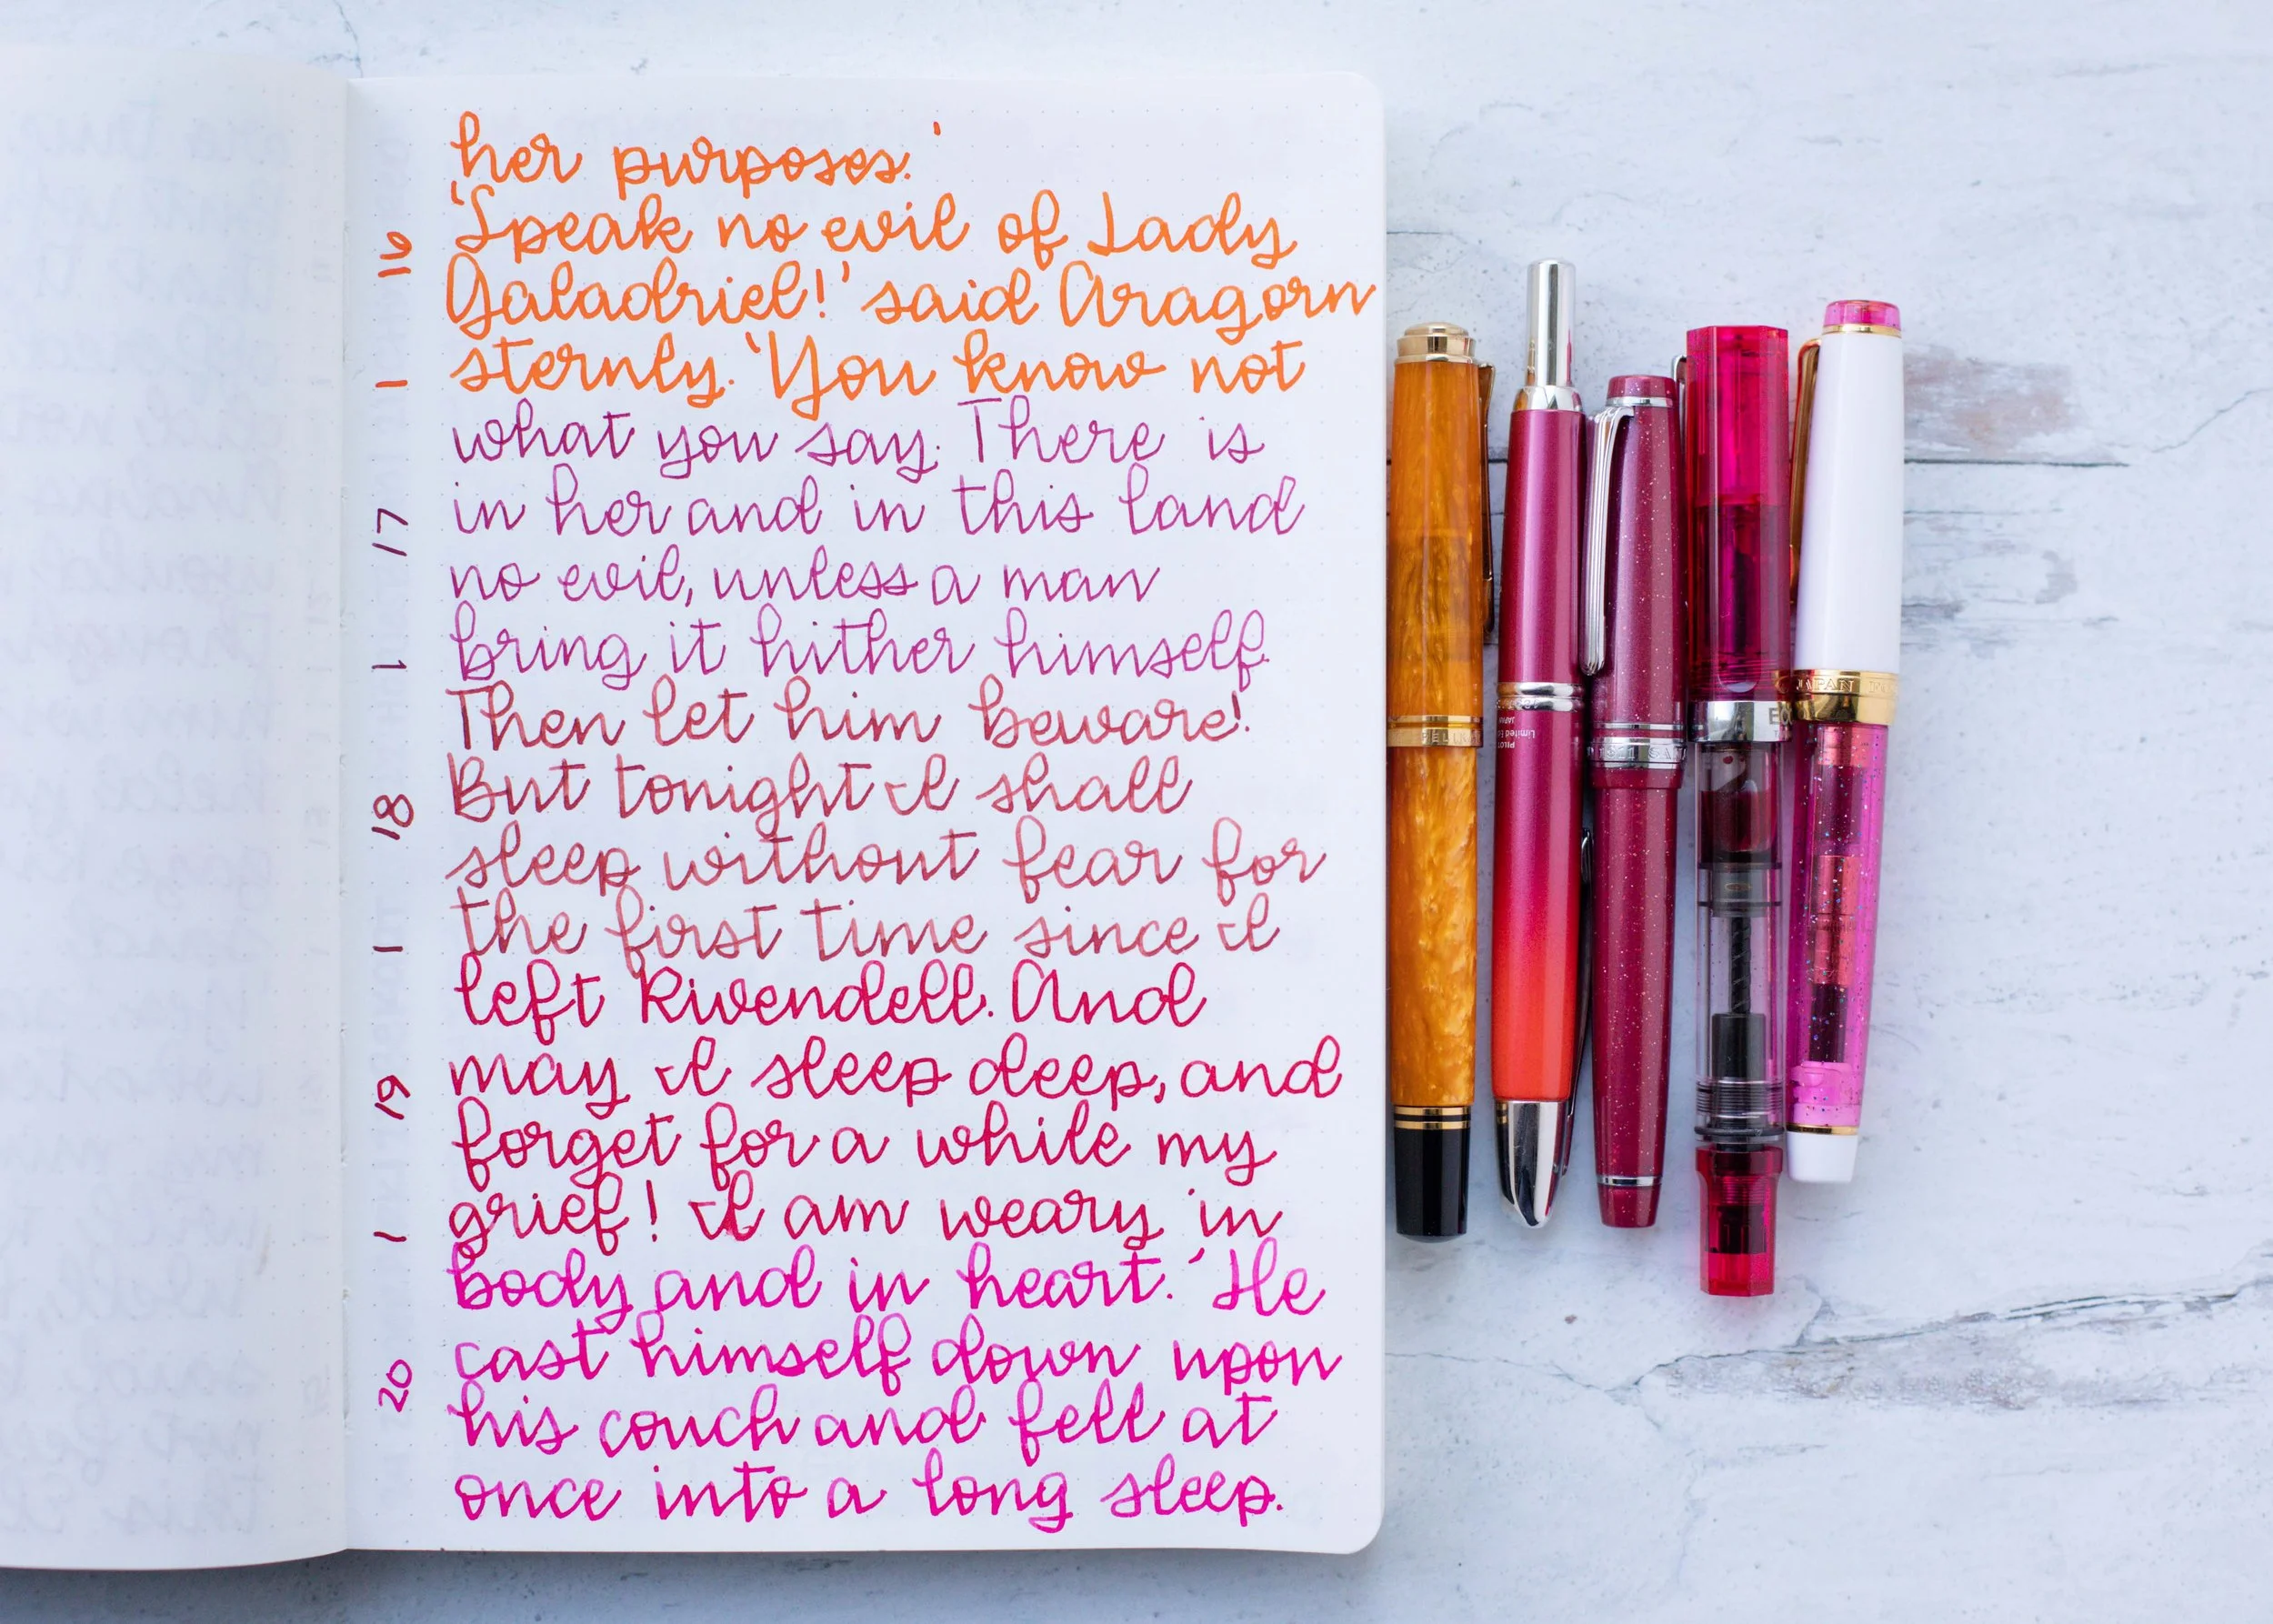 her purposes.'
'Speak no evil of Lady
Galadriel!' said Aragorn
sternly. 'You know not
what you say. There is
in her and in this land
no evil, unless a man
bring it hither himself.
Then let him beware!
But tonight I shall
sleep without fear for
the first time since I
left Rivendell. And
may I sleep deep, and
forget for a while my
grief! I am weary in
body and in heart.' He
cast himself down upon
his couch and fell at
once into a long sleep.
16
1
17
1
18
1
19
1
20
PILOT
JAPAN
Limited
JAPAN